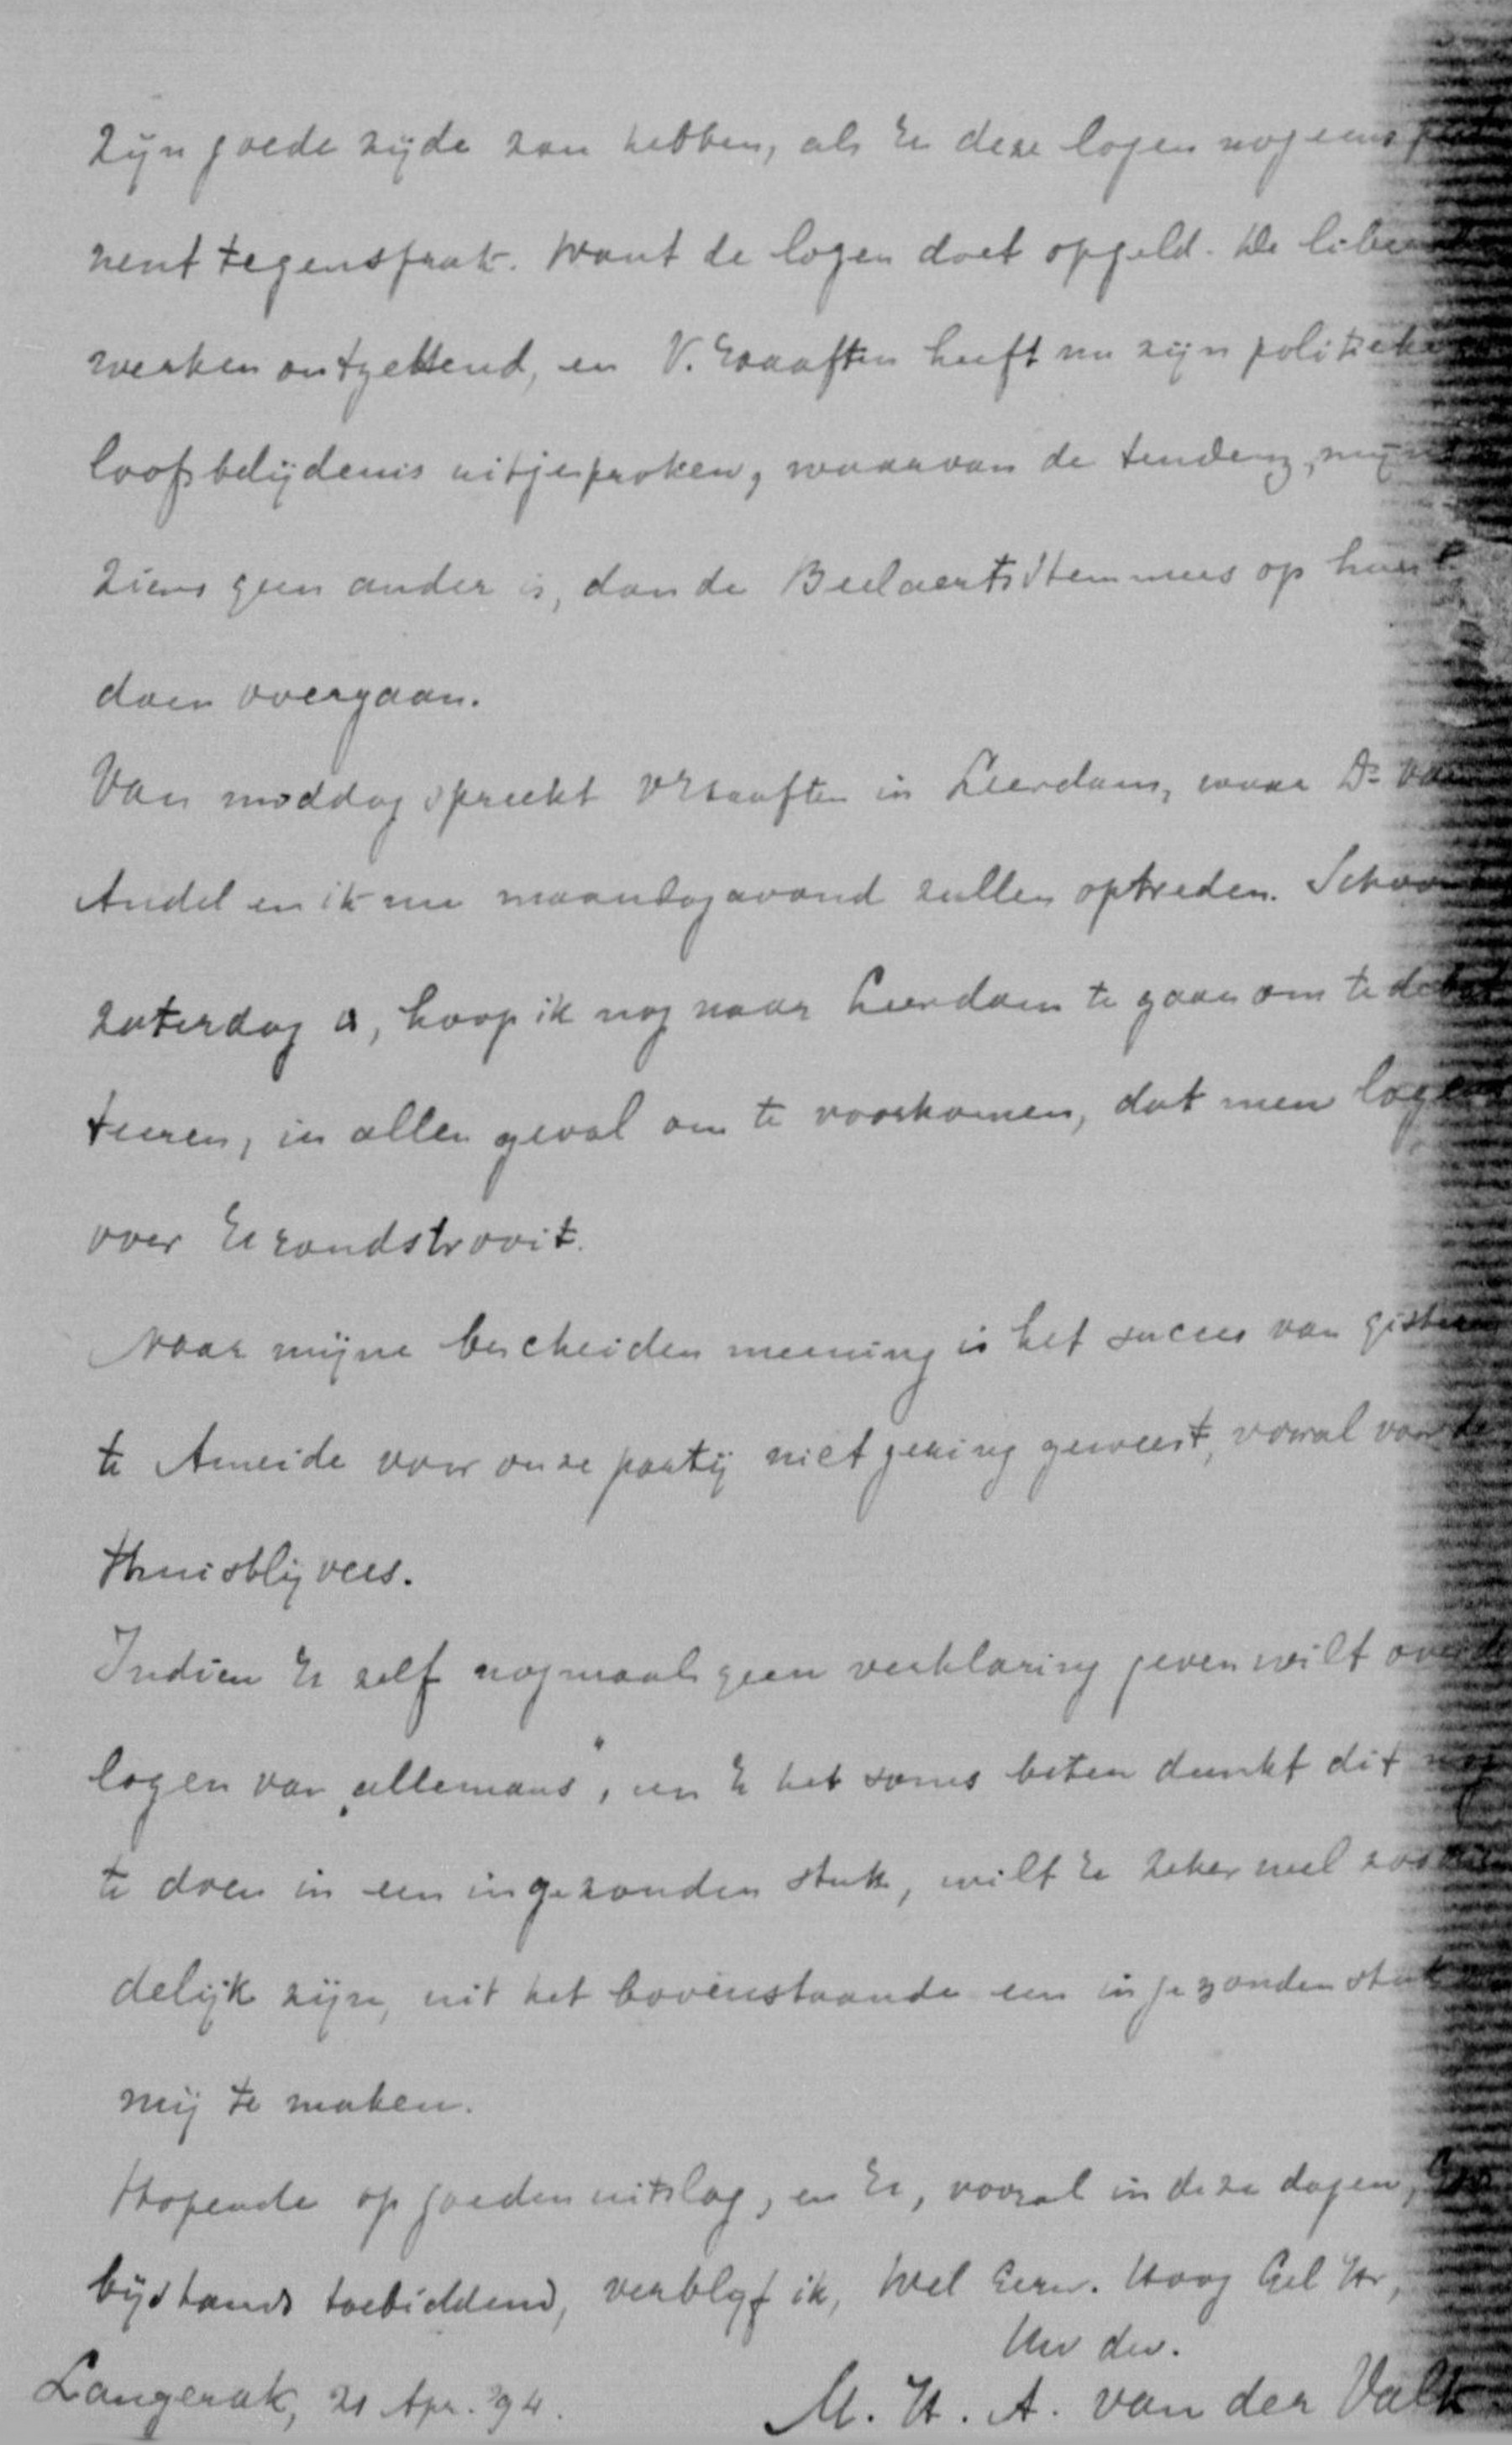 zijn goede zijde zou hebben, als U deze logen nog eens
nent tegensprak. Want de logen doet opgeld. De
werken ontzettend, en V. Haaften heeft nu zijn politieke
loofsbelijdenis uitgesproken, waarvan de tendenz, mijns
ziens geen ander is, dan de Beelaerts stemmers op hun
doen overgaan.
Van middag spreekt v Haaften in Leerdam, waar Ds van
Andel en ik nu maandagavond zullen optreden.
zaterdag is, hoop ik nog naar Leerdam te gaan om te debat
teeren, in allen geval om te voorkomen, dat men logens
over U rondstrooit.
Naar mijne bescheiden meening is het succes van gisteren
te Ameide voor onze partij niet gering geweest, vooral voor de
thuisblijvers.
Indien U zelf nogmaals geen verklaring geven wilt over de
logen van „allemans", en U het soms beter dunkt dit
te doen in een ingezonden stuk, wilt U zeker wel zoo
delijk zijn, uit het bovenstaande een ingezonden stuk
mij te maken.
Hopende op goeden uitslag, en U, vooral in deze dagen,
bijstand toebiddend, verblijf ik, Wel Eerw. Hoog Gel Hr,
Uw dw.
Langerak, 21 Apr. '94. M. H. A. van der Valk